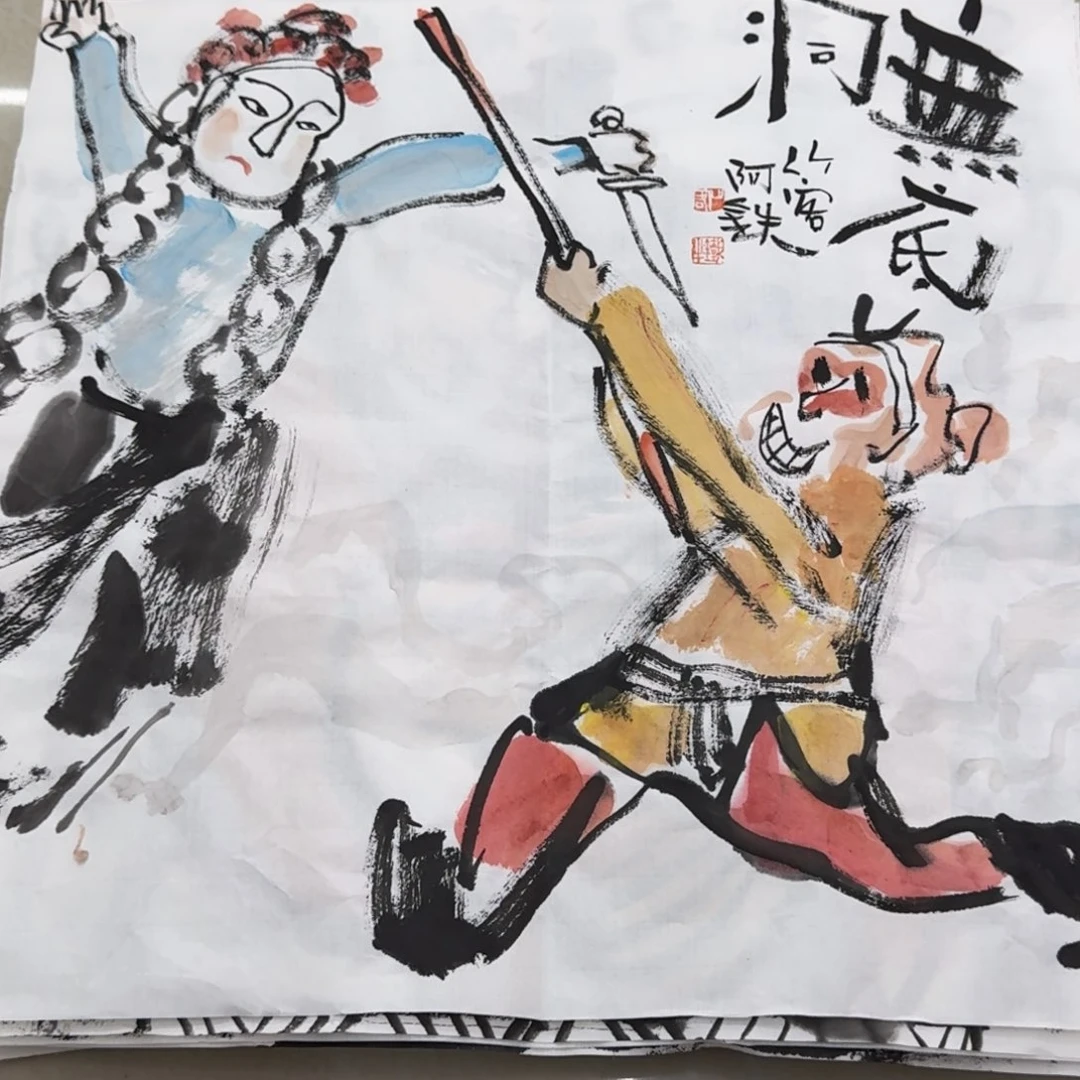 無底
洞
竹客
阿鉄